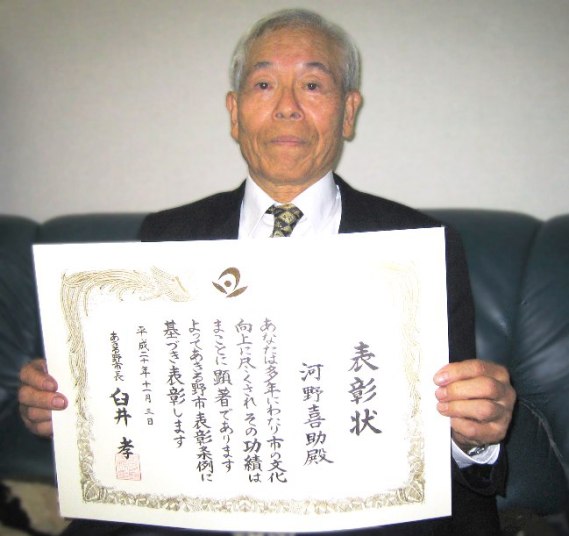 表彰状
河野喜助殿
あなたは多年にわたり市の文化
向上に尽くされ その功績は
まことに顕著であります
よってあきる野市表彰条例に
基づき表彰します
平成二十年十一月三日
あきる野市長
臼井孝